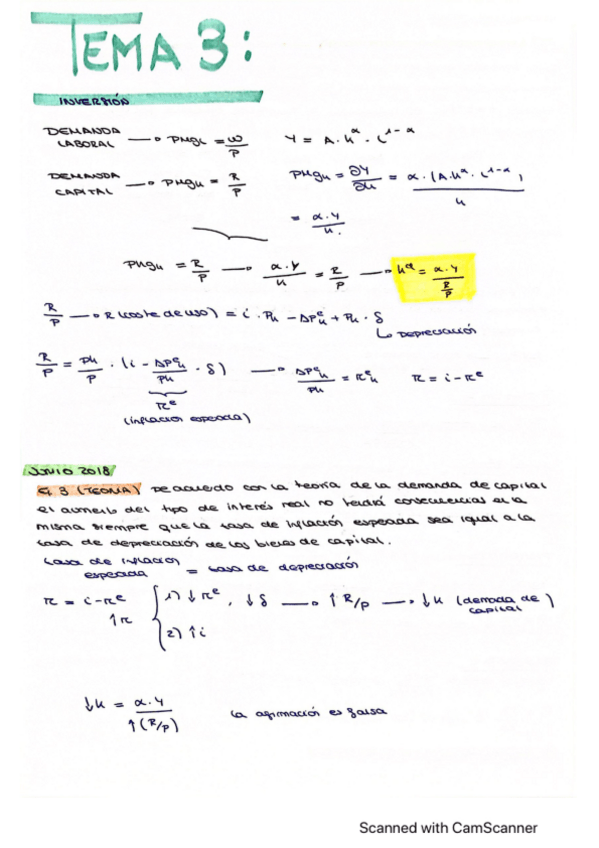 TEMA 3:
INVERSIÓN
DEMANDA LABORAL —o PMgL = W/P    Y = A · K^α · L^1-α
DEMANDA CAPITAL —o PMgK = R/P    PMgK = ∂Y/∂K = α · (A·K^α · L^1-α) / K
= α·Y / K.
PMgK = R/P —o α·Y / K = R/P —o K^d = α·Y / (R/P)
R/P —o R (coste de uso) = i · Pk − ΔP^e_k + Pk · δ
↳ DEPRECIACIÓN
R/P = Pk/P · (i − ΔP^e_k / Pk · δ) —o ΔP^e_k / Pk = π^e_k    r = i − π^e
π^e
(inflación esperada)
JUNIO 2018
EJ. 3 (TEORÍA) De acuerdo con la teoría de la demanda de capital
el aumento del tipo de interés real no tendrá consecuencias en la
misma siempre que la tasa de inflación esperada sea igual a la
tasa de depreciación de los bienes de capital.
tasa de inflación esperada = tasa de depreciación
r = i − π^e    1) ↓π^e, ↓δ —o ↑R/P —o ↓K (demanda de capital)
↑r    2) ↑i
↓K = α·Y / ↑(R/P)    la afirmación es falsa
Scanned with CamScanner